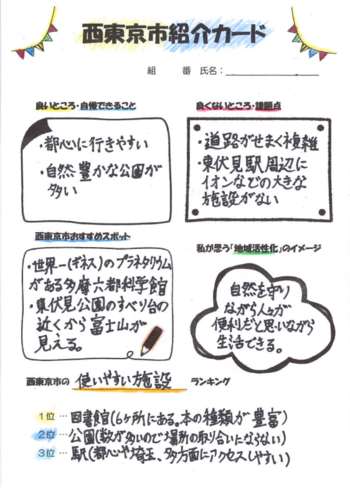 西東京市紹介カード
組 番 氏名:
良いところ・自慢できること
・都心に行きやすい
・自然豊かな公園が
多い
良くないところ・課題点
・道路がせまく複雑
・東伏見駅周辺に
イオンなどの大きな
施設がない
西東京市おすすめスポット
・世界一(ギネス)のプラネタリウム
がある多摩六都科学館
・東伏見公園のすべり台の
近くから富士山が
見える。
私が思う「地域活性化」のイメージ
自然を守り
ながら人々が
便利だと思いながら
生活できる。
西東京市の 使いやすい施設 ランキング
1位 … 図書館(6ヶ所にある。本の種類が豊富)
2位 … 公園(数が多いので場所の取り合いにならない)
3位 … 駅(都心や埼玉、多方面にアクセスしやすい)